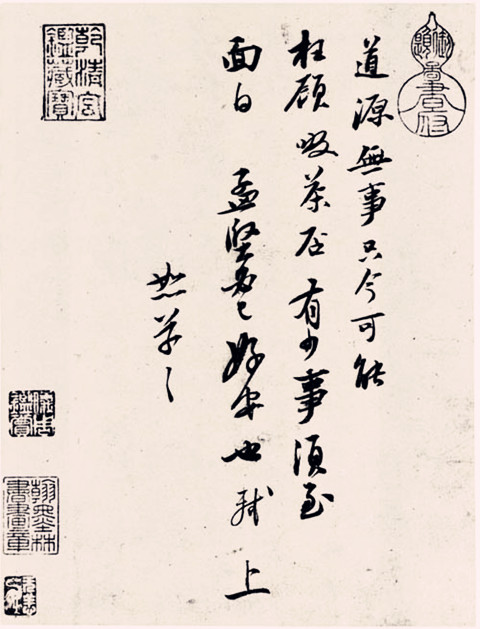 道源無事只今可能
枉顧啜茶否有少事須至
面白孟堅必已好安也軾上
恕草草
乾清宮鑑藏寶
翰墨林書畫章